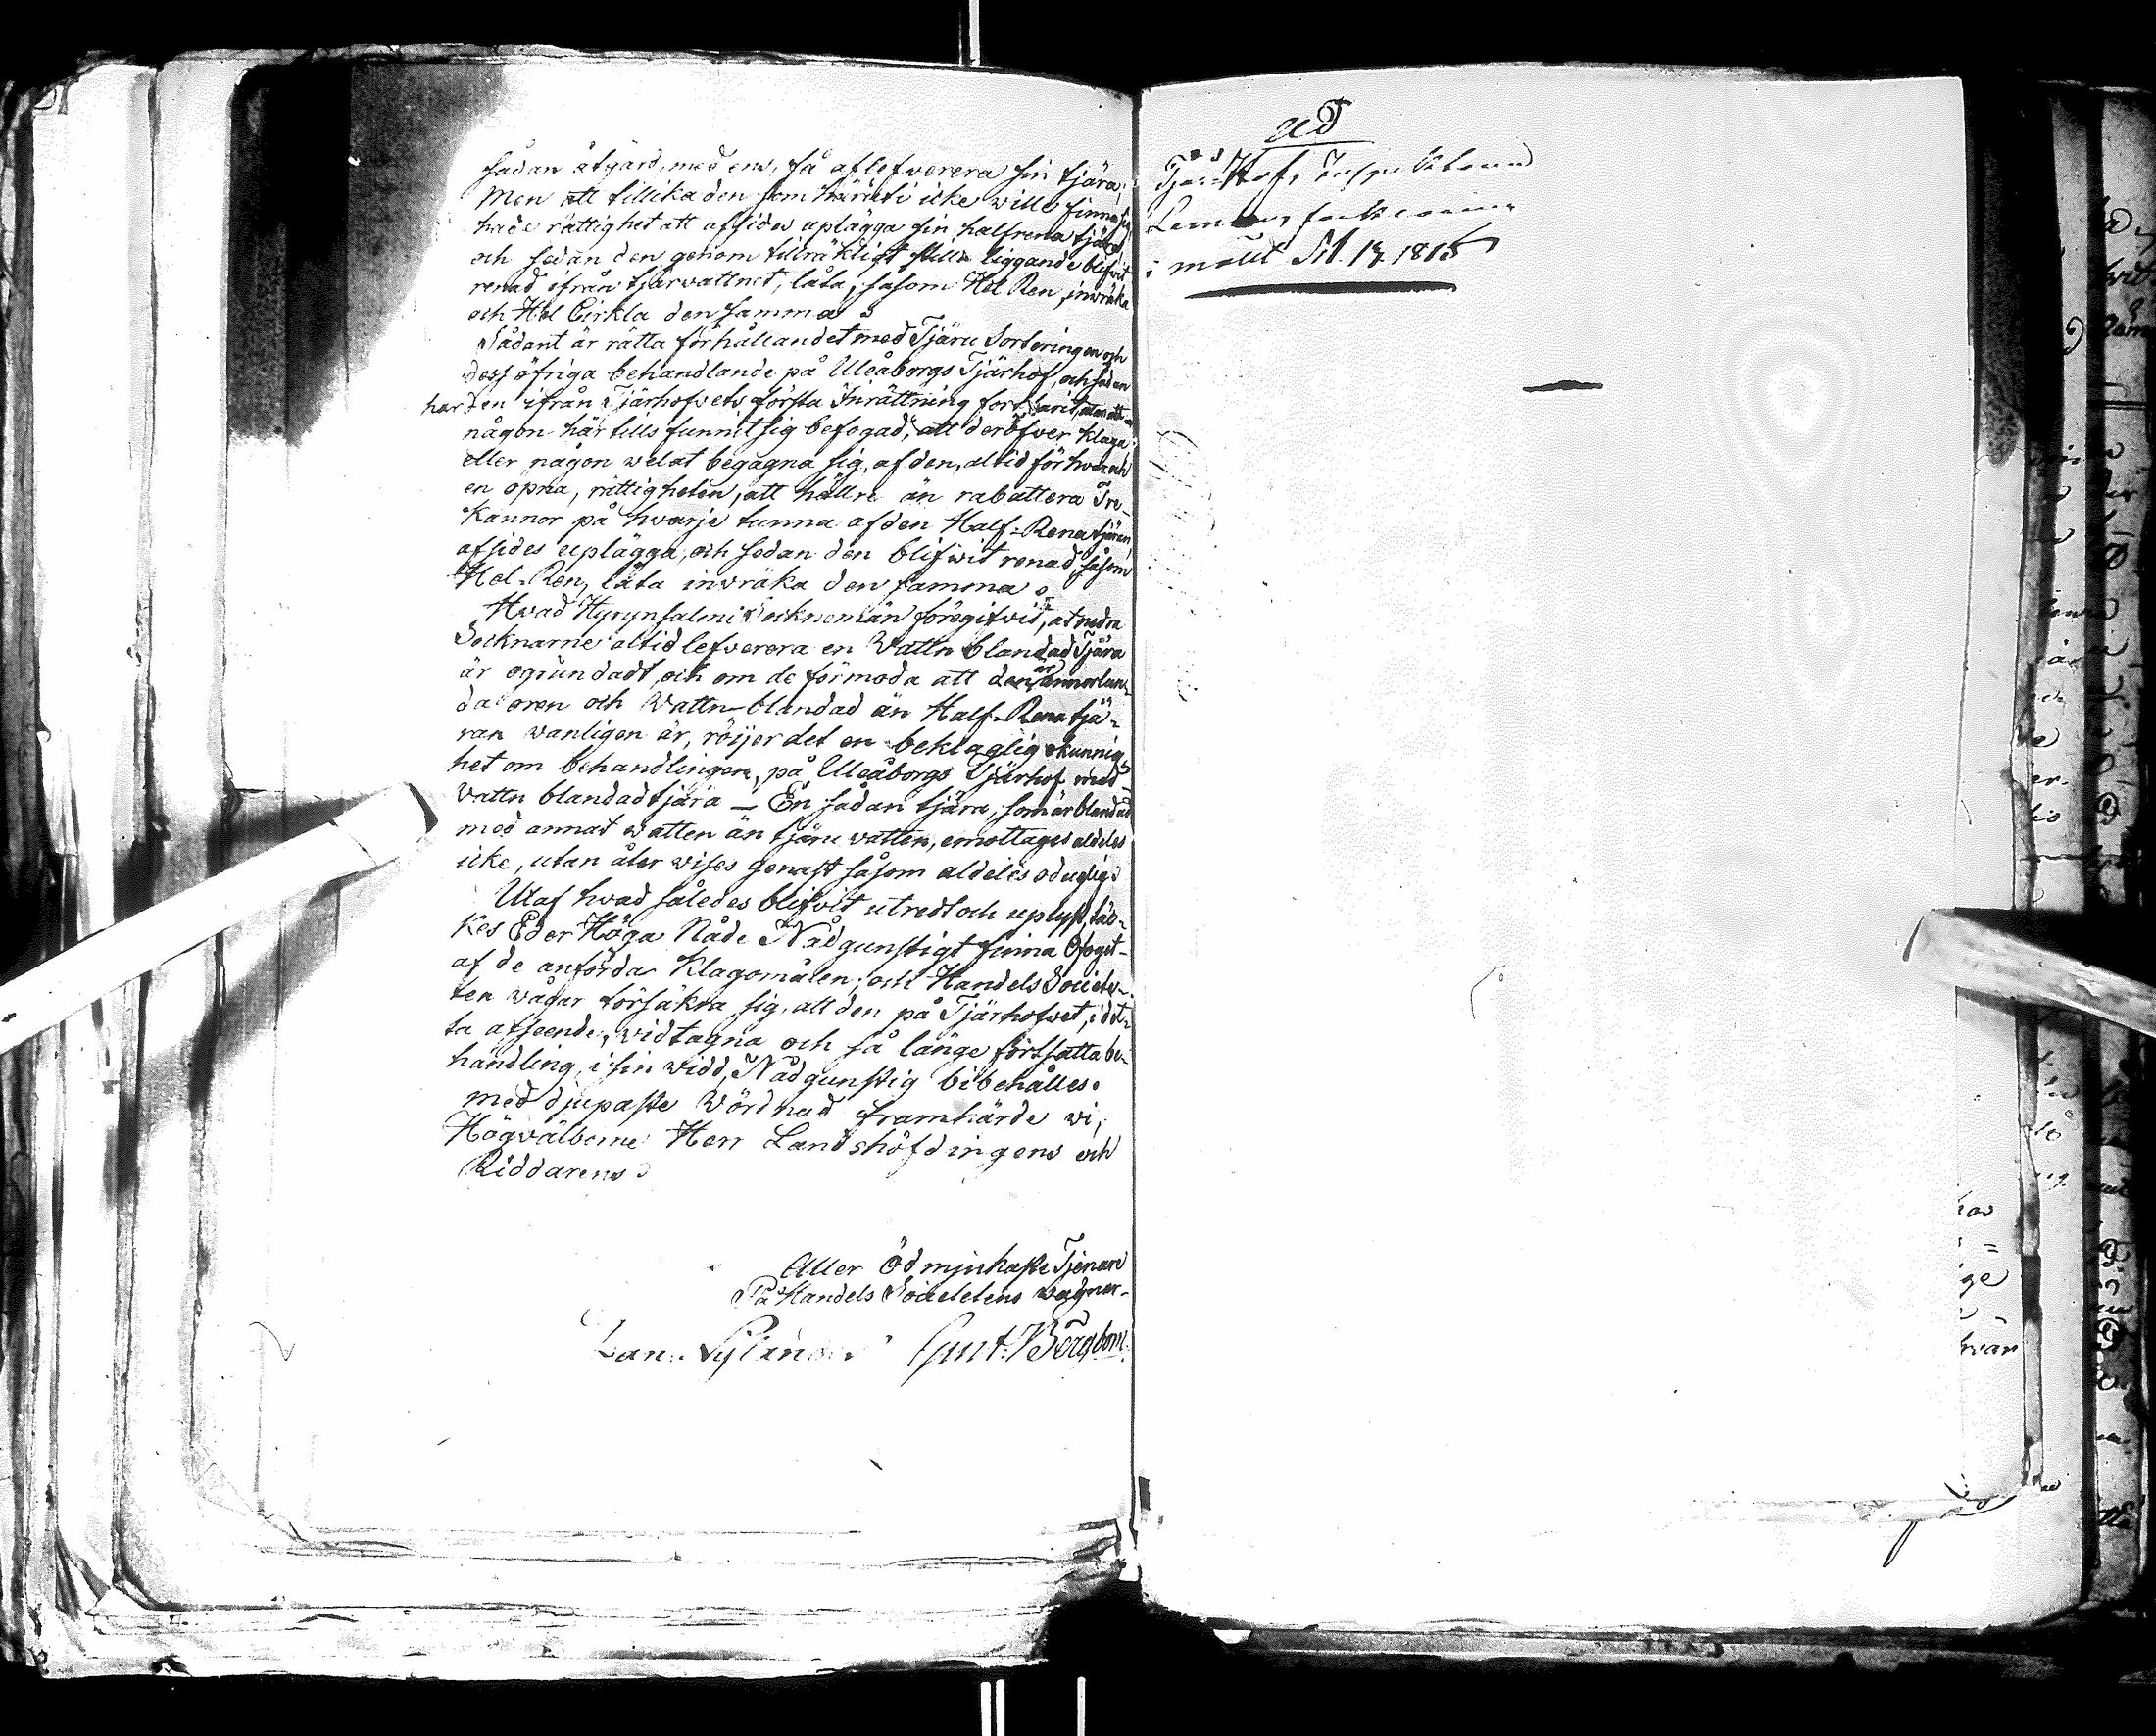 sådan åtgärd, med ens, få aflefverera sin tjära;
Men att tillika den som häruti icke wille finna sig,
hade rättighet att afsides uplägga sin halfrena tjära,
och sedan den genom tilräkligt stilla liggande blifvit
renad ifrån tjärvattnet, låta, såsom Hel Ren, inwräka
och Hel Cirkla den samma.
Sådant är rätta förhållandet med Tjäru Sorteringen och
dess öfriga behandlande på Uleåborgs Tjärhof, och sedan
har den ifrån Tjärhofvets första Inrättning fortfarit, utan att
någon här tills funnit sig befogad, att deröfver klaga
eller någon welat begagna sig, af den, altid för hvar och
en öpna, rättigheten, att hällre än rabattera Tre
Kannor på hwarje tunna af den Half-Rena tjäran,
afsides uplägga, och sedan den blifwit renad, såsom
Hel-Ren, låta inwräka den samma.
Hvad Hyrynsalmi Socknemän föregifvit, at nedra
Socknarne altid lefverera en Vattn blandad Tjära
är ogrundadt, och om de förmoda att den är annorlun-
da oren och Vattn-blandad än Half-Rena tjä-
ran wanligen är, röijer det en beklaglig okunnig-
het om behandlingen, på Uleåborgs Tjärhof med
Vattn blandad tjära — En sådan tjära, som är blandad
med annat watten än tjäru vatten, emottages aldeles
icke, utan åter wises genast såsom aldeles oduglig.
Utaf hvad således blifvit utredt och uplyst, täc-
kes Eder Höga Nåde Nådgunstigt finna Ofoget
af de anförda Klagomålen; och Handels Societe-
ten wågar försäkra sig, att den på Tjärhofvet, i det-
ta afseende, vidtagna och så länge fortsatta be-
handling, i sin widd, Nådgunstig bibehålles.
Med djupaste Wördnad framhärde wi,
Högvälborne Herr Landshöfdingens och
Riddarens
Aller Ödmjukaste Tjenare
På Handels Societetens wägnar
Nylander Gust. Bergbom
Tjär Hof, Inspektoren
i målet 1815